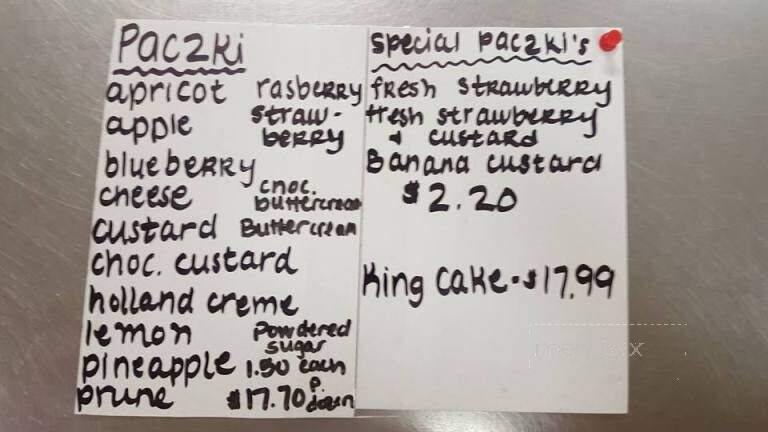 Paczki
apricot rasberry
apple straw-
berry
blueberry
cheese choc.
buttercream
custard Buttercream
choc. custard
holland creme
lemon Powdered
sugar
pineapple 1.50 each
prune $17.70 p. dozen
special paczki's
fresh strawberry
fresh strawberry
+ custard
Banana custard
$2.20
King Cake - $17.99